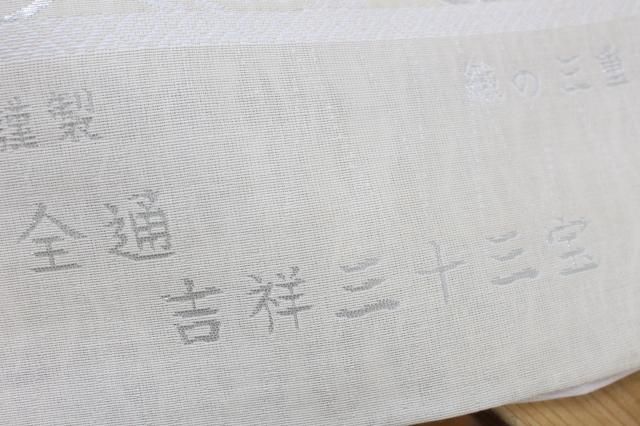 織の三重
謹製
全通
吉祥三十三宝